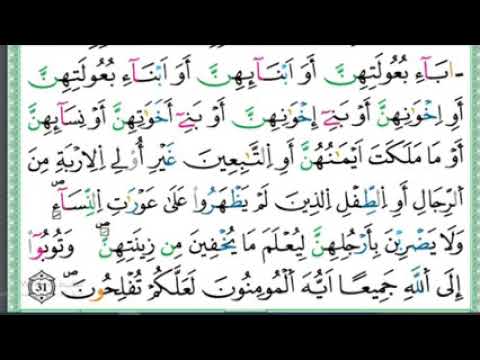 ابَآءِ بُعُولَتِهِنَّ أَوَ اَبْنَآئِهِنَّ أَوَ اَبْنَآءِ بُعُولَتِهِنَّ
أَوِ اِخْوَٰنِهِنَّ أَوْ بَنِےٓ إِخْوَٰنِهِنَّ أَوْ بَنِےٓ أَخَوَٰتِهِنَّ أَوْ نِسَآئِهِنَّ
أَوْ مَا مَلَكَتَ اَيْمَٰنُهُنَّ أَوِ اِ۬لتَّٰبِعِينَ غَيْرِ أُوْلِے اِ۬لِارْبَةِ مِنَ
اَ۬لرِّجَالِ أَوِ اِ۬لطِّفْلِ اِ۬لذِينَ لَمْ يَظْهَرُواْ عَلَىٰ عَوْرَٰتِ اِ۬لنِّسَآءِۖ
وَلَا يَضْرِبْنَ بِأَرْجُلِهِنَّ لِيُعْلَمَ مَا يُخْفِينَ مِن زِينَتِهِنَّۖ وَتُوبُوٓاْ
إِلَى اَ۬للَّهِ جَمِيعًا اَيُّهَ اَ۬لْمُومِنُونَ لَعَلَّكُمْ تُفْلِحُونَۖ 31